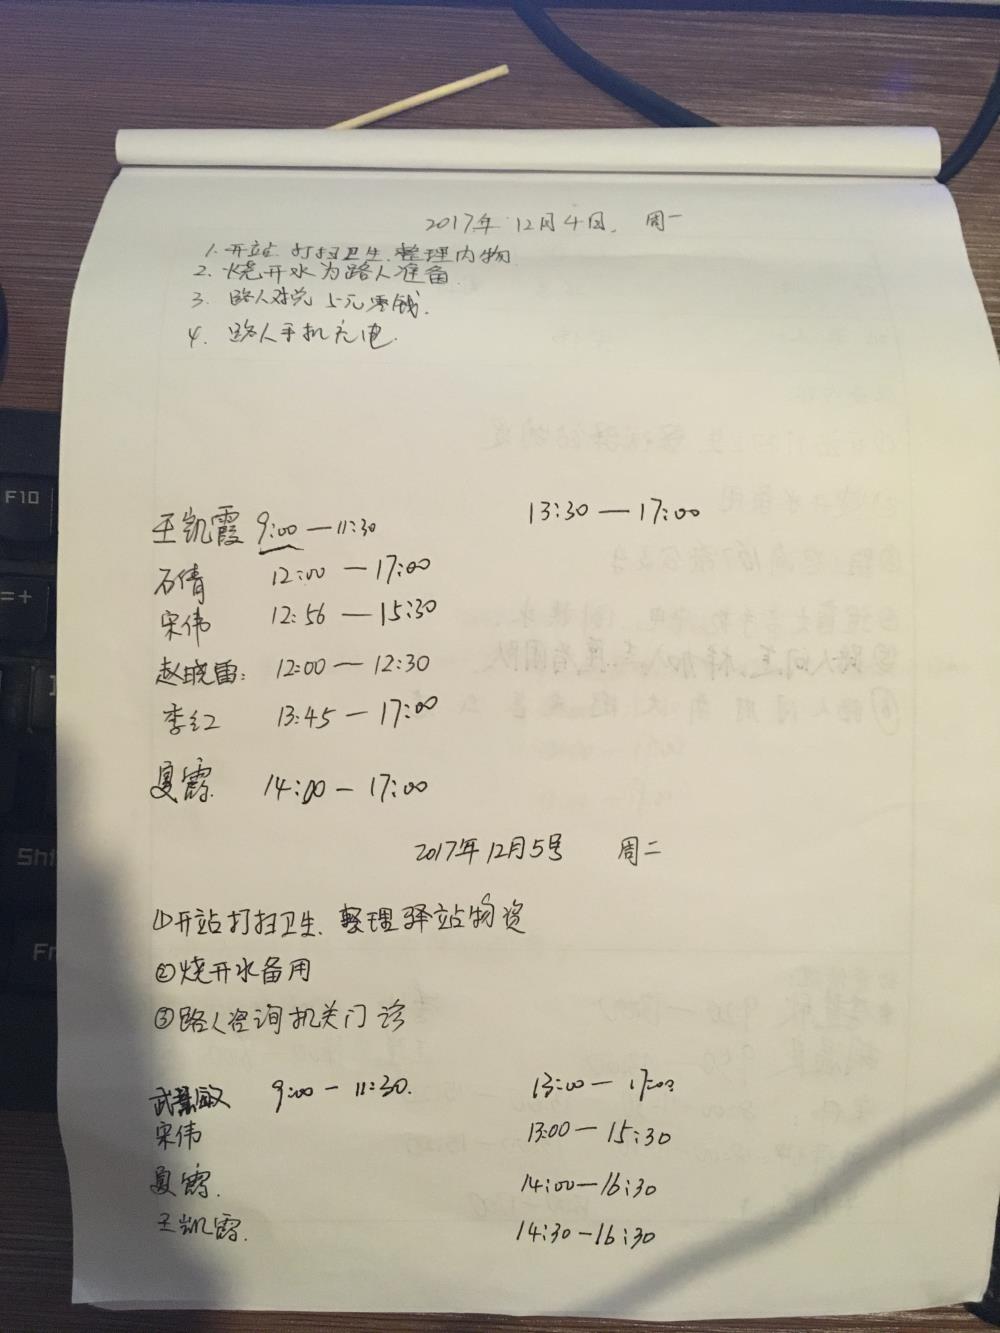 2017年12月4日. 周一
1. 开站 打扫卫生.整理内物.
2. 烧开水为路人准备.
3. 路人对兑 5元零钱.
4. 路人手机充电.
王凯霞 9:00—11:30 13:30—17:00
石倩 12:00—17:00
宋伟 12:56—15:30
赵晓雷: 12:00—12:30
李红 13:45—17:00
夏霞. 14:00—17:00
2017年12月5号 周二
①开站打扫卫生、整理驿站物资
②烧开水备用
③路人咨询机关门诊
武慧敏 9:00—11:30. 13:00—17:00
宋伟 13:00—15:30
夏霞. 14:00—16:30
王凯霞. 14:30—16:30
F10
=+
Sh
Fn